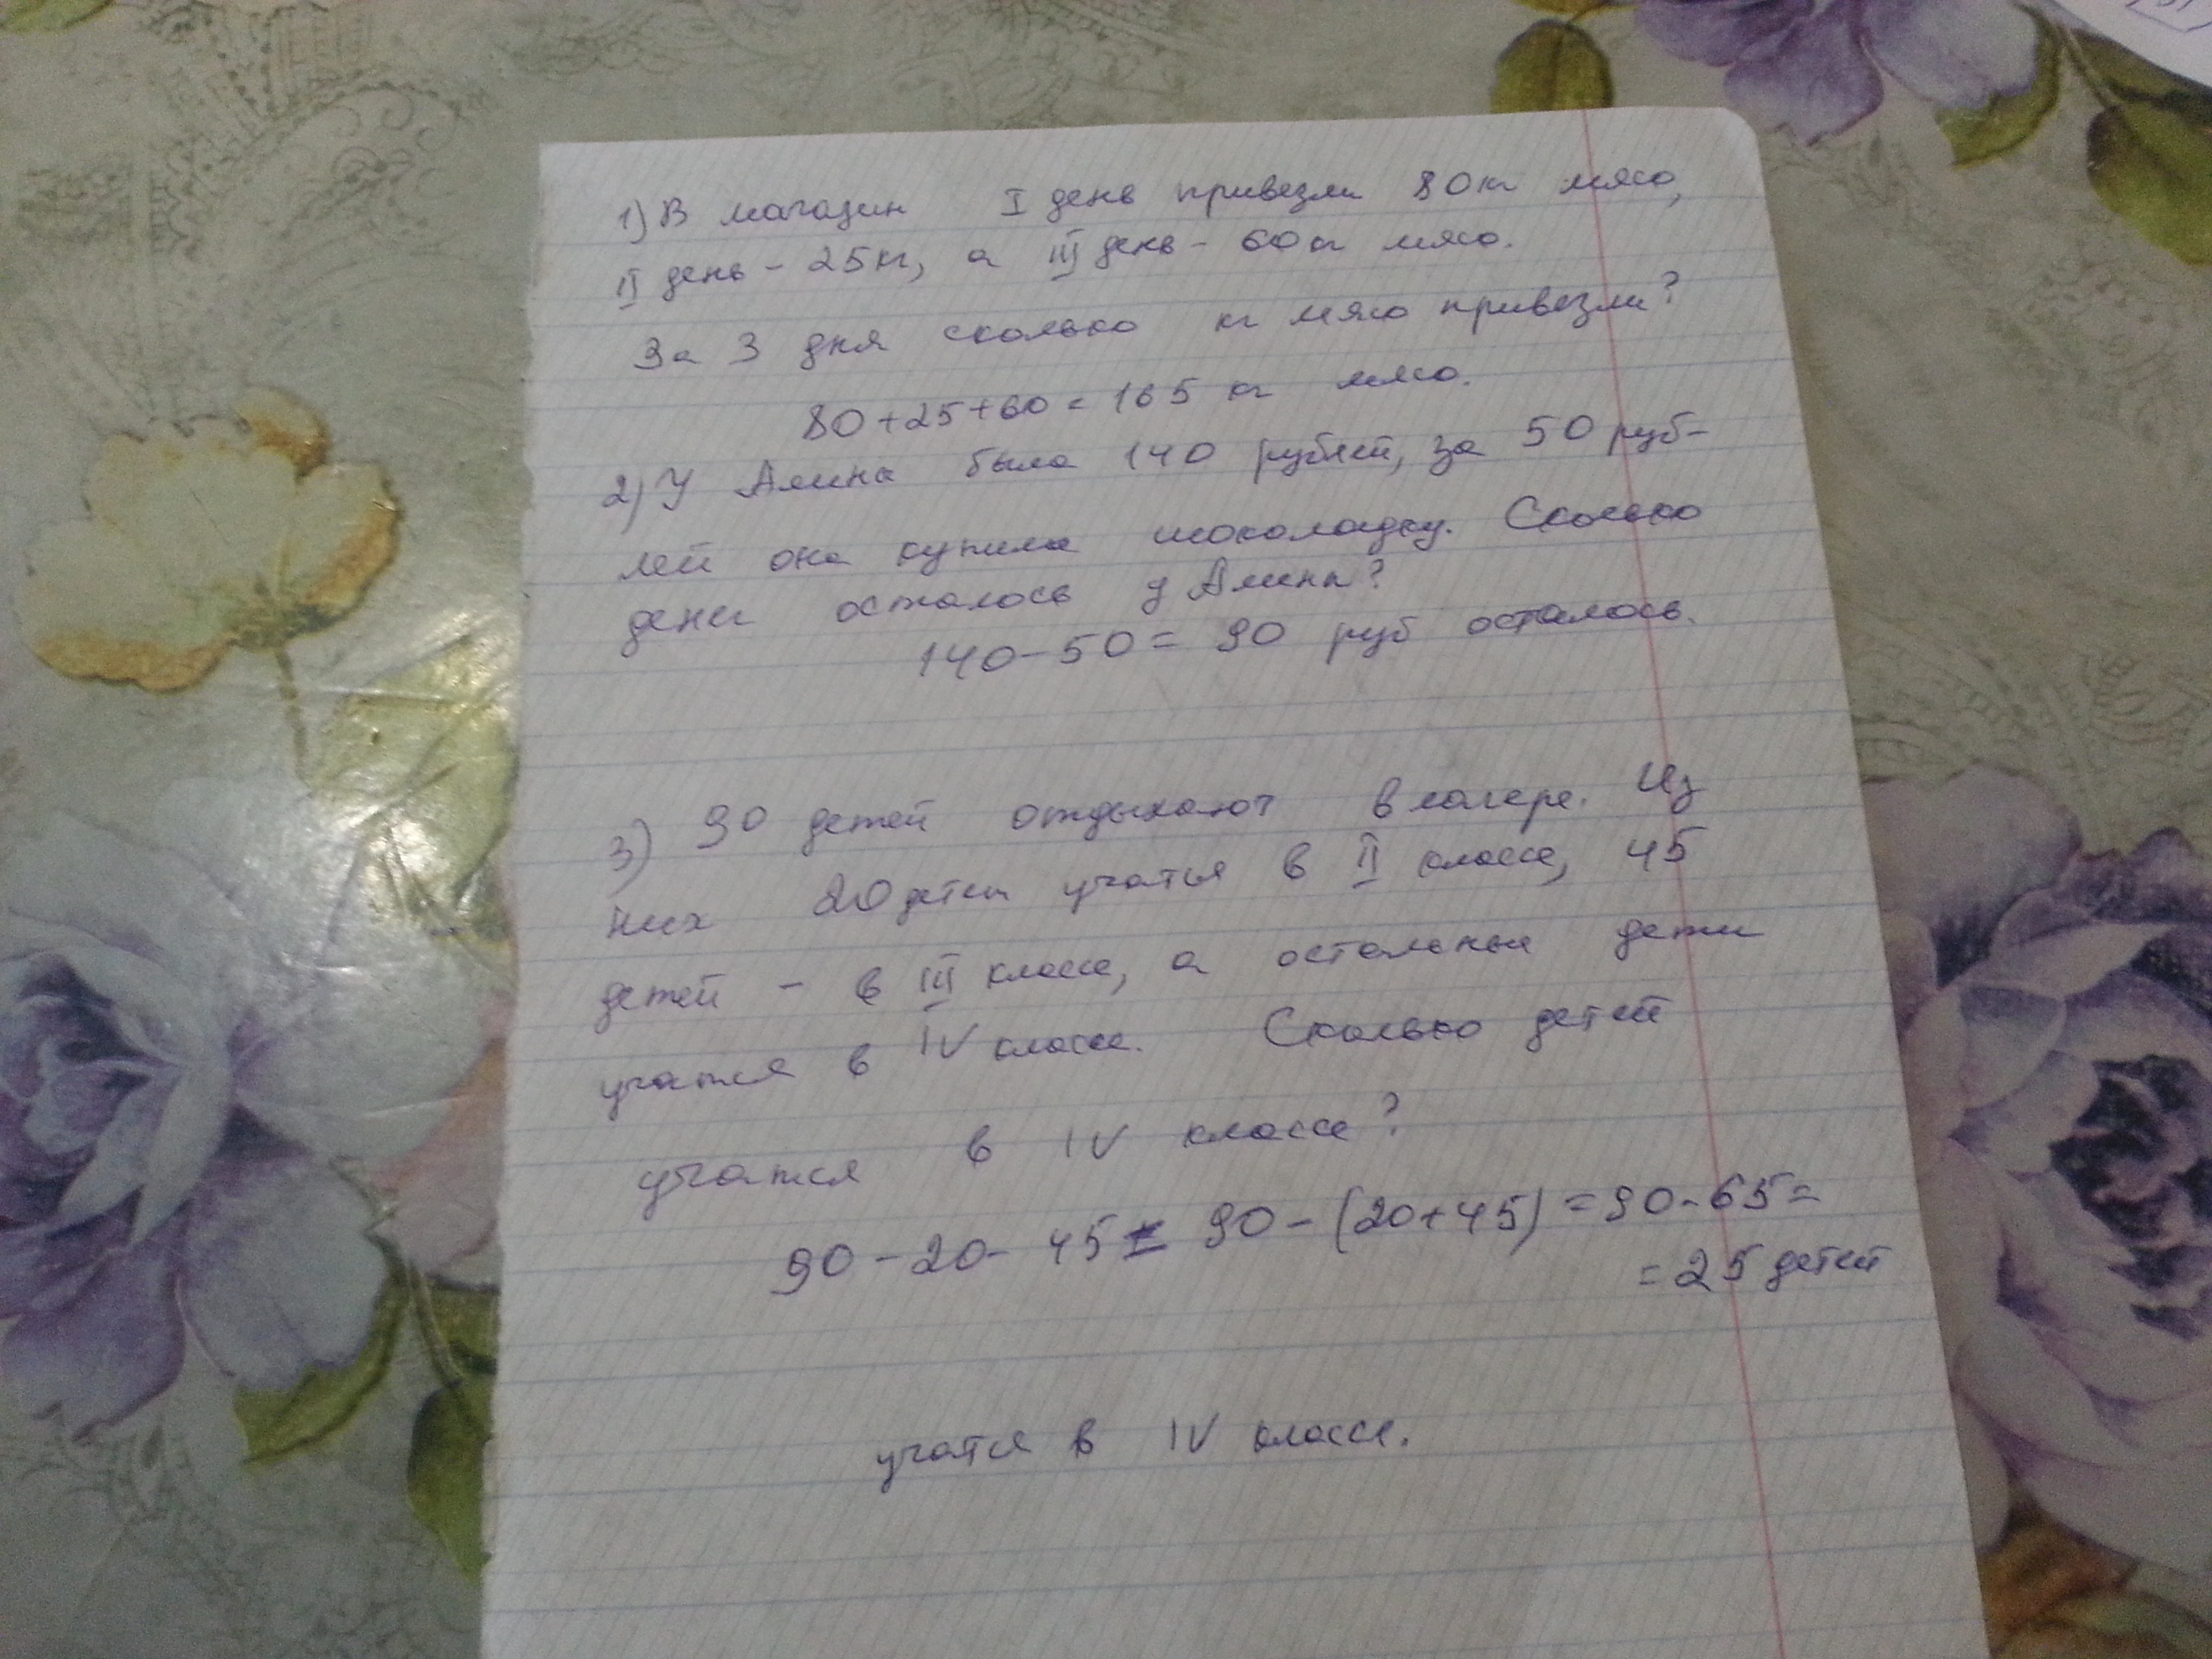 1) В магазин I день привезли 80 кг мясо,
II день - 25 кг, а III день - 60 кг мясо.
За 3 дня сколько кг мясо привезли?
80+25+60=165 кг мясо.
2) У Алина была 140 рублей, за 50 руб-
лей она купила шоколадку. Сколько
денег осталось у Алины?
140-50= 90 руб осталось.
3) 90 детей отдыхают в лагере. Из
них 20 детей учатся в II классе, 45
детей - в III классе, а остальные дети
учатся в IV классе. Сколько детей
учатся в IV классе?
90 - 20 - 45 = 90 - (20+45) = 90 - 65 =
= 25 детей
учатся в IV классе.